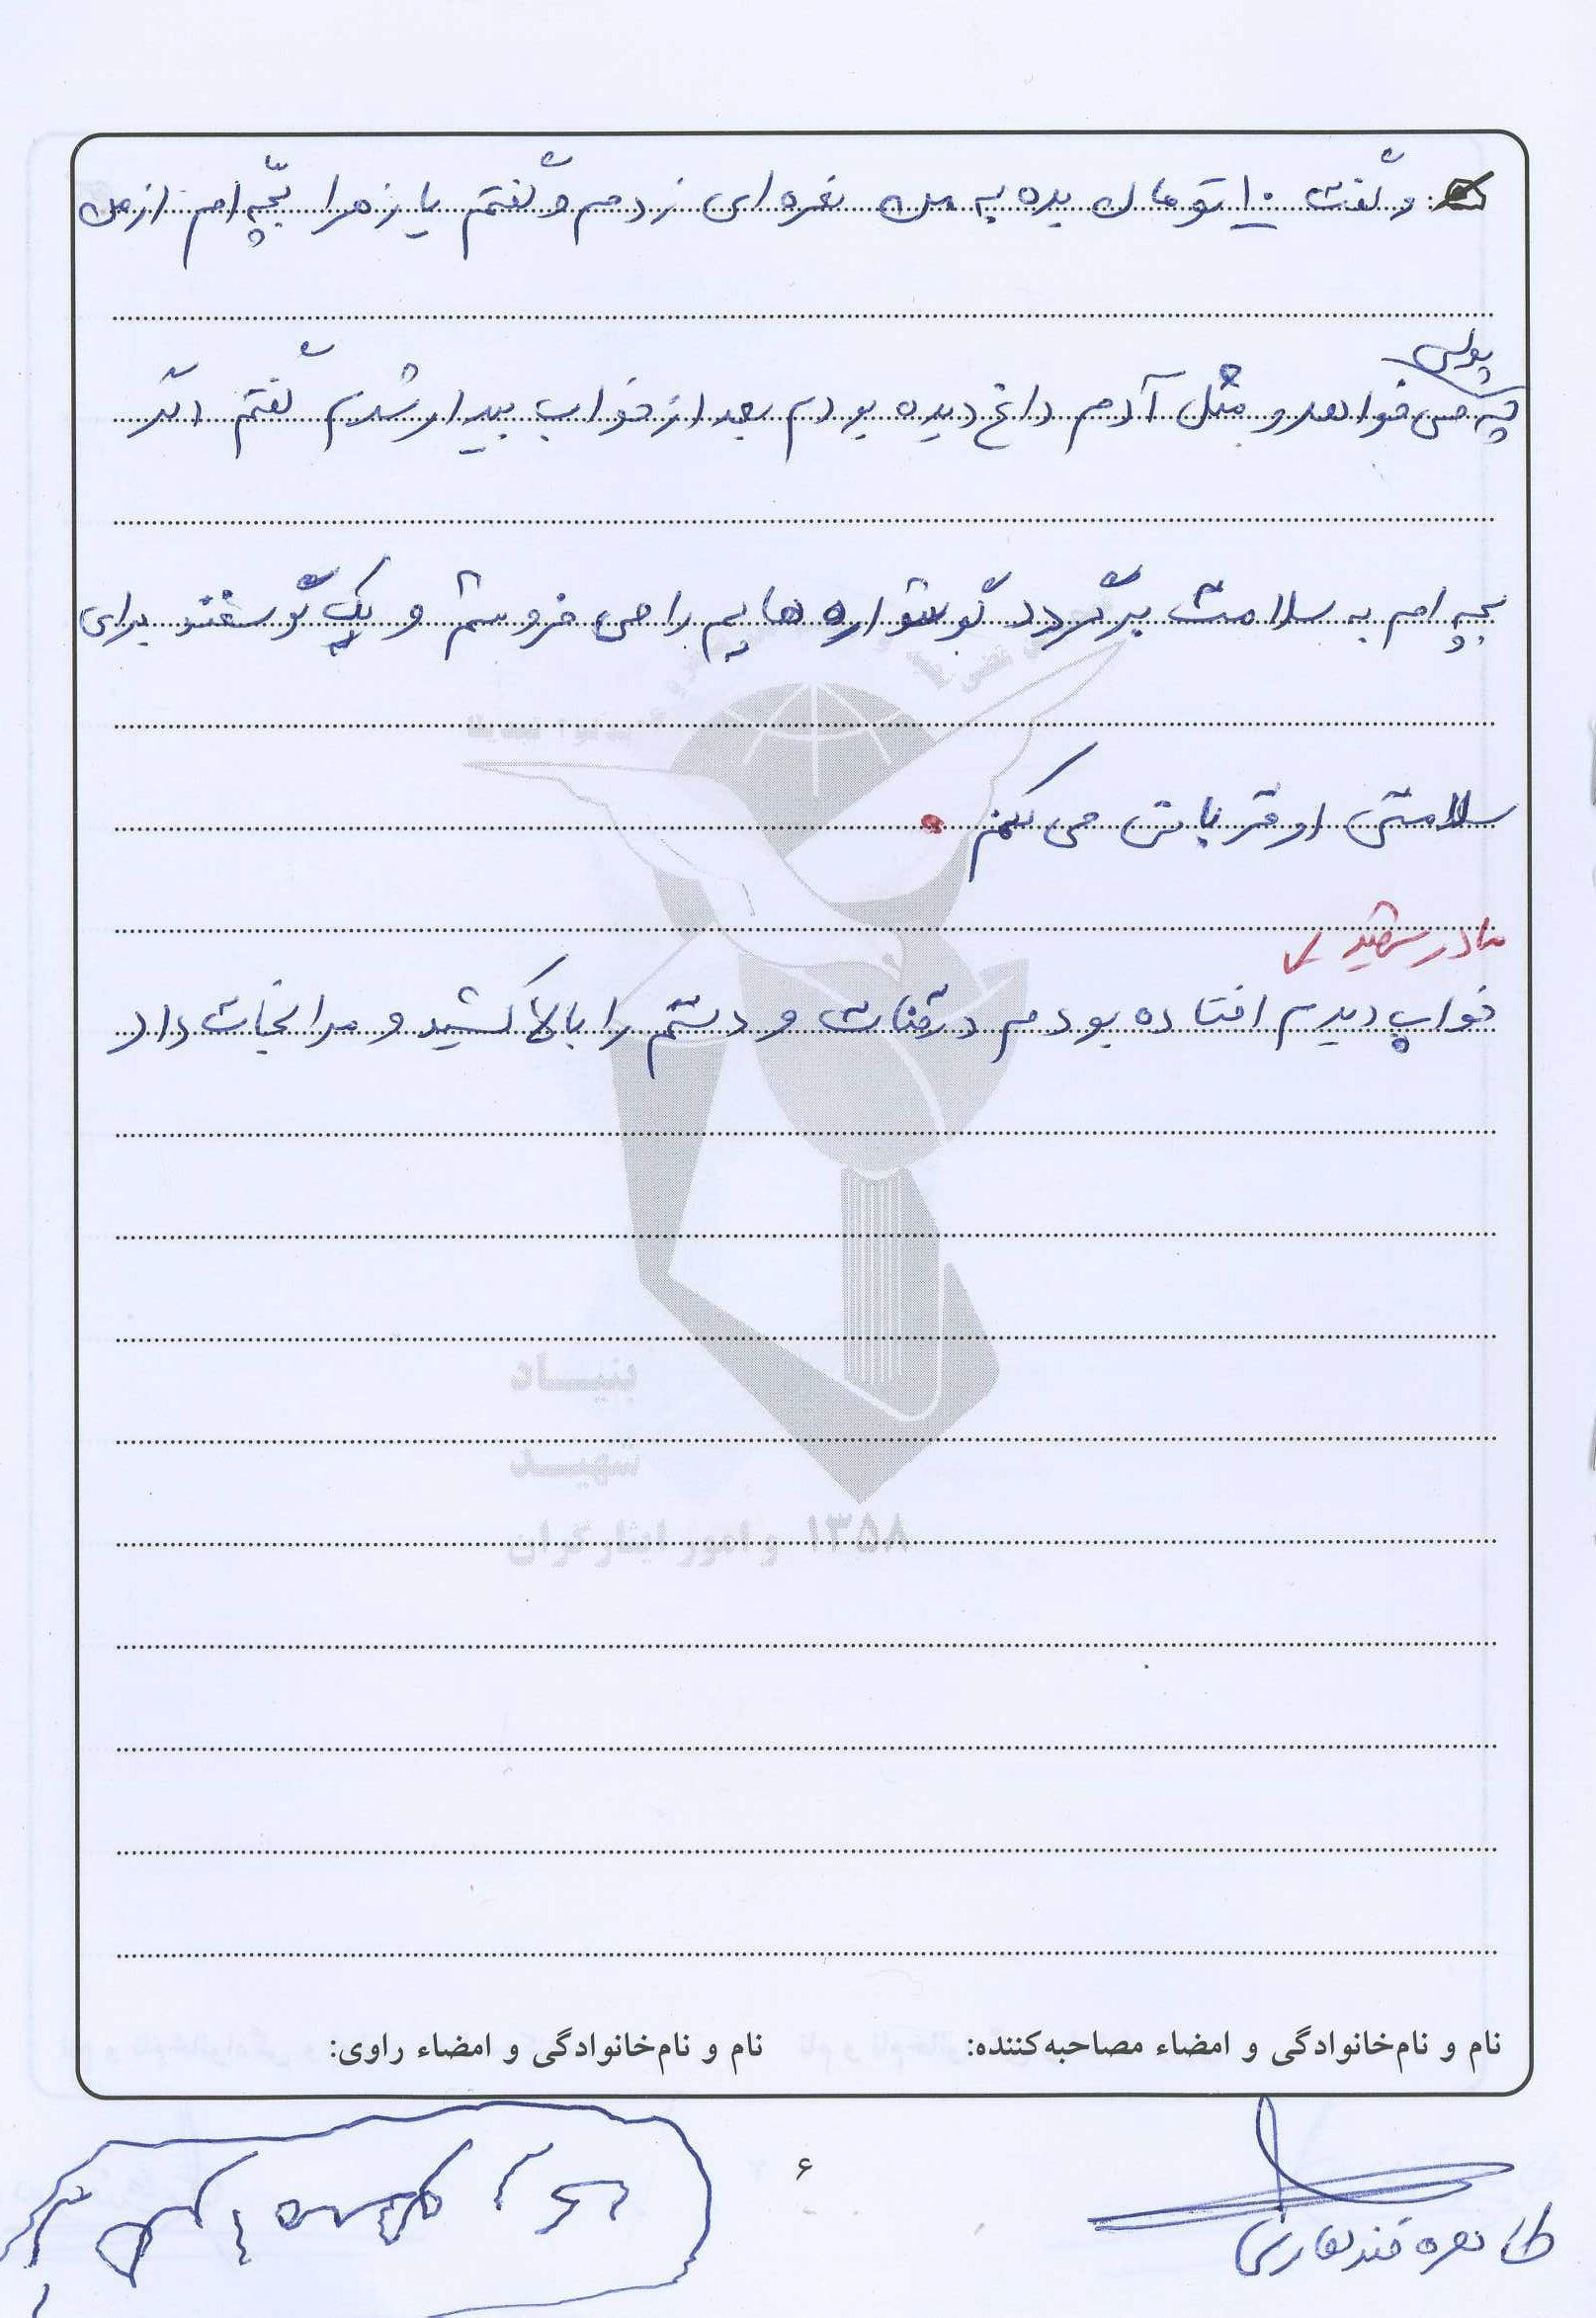 و گفت ۱۰ تومان بده به من نعره ای زدم و گفتم یا زهرا بچّه ام از من
پولی
چه می خواهد و مثل آدم داغ دیده بودم بعد از خواب بیدار شدم گفتم اگر
بچه ام به سلامت برگردد گوشواره هایم را می فروشم و یک گوسفند برای
سلامتی او قربانی می کنم
مادر شهید
خواب دیدم افتاده بودم در قنات و دستم را بالا کشید و مرا نجات داد
بنیاد
شهید
و امور ایثارگران ۱۳۵۸
نام و نام‌خانوادگی و امضاء مصاحبه‌کننده:
نام و نام‌خانوادگی و امضاء راوی:
۶
طاهره قندهاری